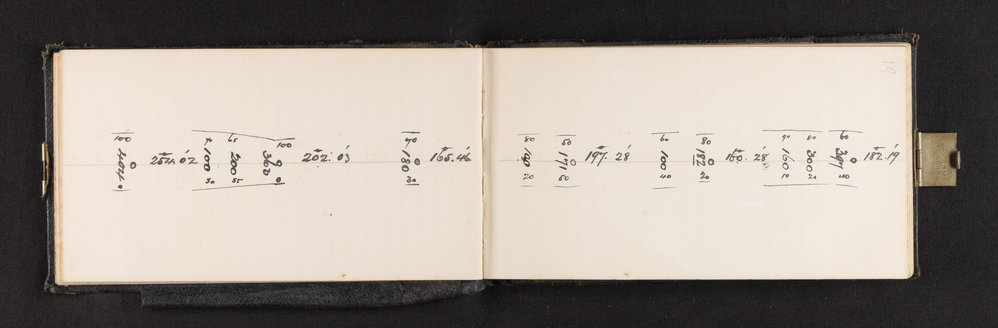 100 404 0
252° 02'
70 100 30
65 200 35
100 0
202° 03'
70 180 30
165° 46'
80 140 20
50 171 50
197° 28'
60 100 40
80 182 20
160° 28'
90 160 10
80 300 20
60 391 40
182° 19'
19